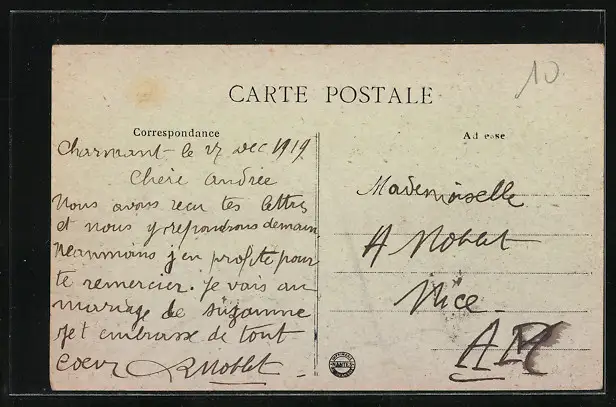 10
CARTE POSTALE
Correspondance
Charmant le 27 dec 1919
Chère andrée
Nous avons recu tes lettres
et nous y repondrons demain
Neanmoins j'en profite pour
te remercier. Je vais au
mariage de Suzanne
et embrasse de tout
coeur R Noblet
Ad esse
Mademoiselle
A Noblet
Nice
AM